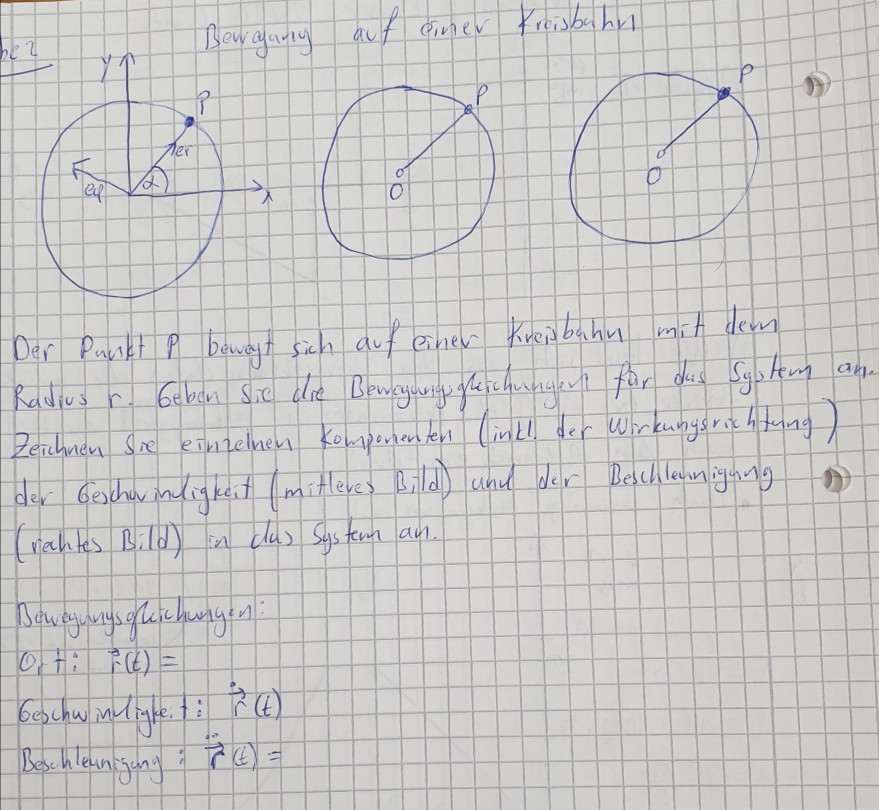 Bewegung auf einer Kreisbahn
y P er eφ α x
P O
P O
Der Punkt P bewegt sich auf einer Kreisbahn mit dem
Radius r. Geben Sie die Bewegungsgleichungen für das System an.
Zeichnen Sie einzelnen Komponenten (inkl. der Wirkungsrichtung)
der Geschwindigkeit (mittleres Bild) und der Beschleunigung
(rechtes Bild) in das System an.
Bewegungsgleichungen:
Ort: r⃗(t) =
Geschwindigkeit: ṙ⃗(t)
Beschleunigung: r̈⃗(t) =